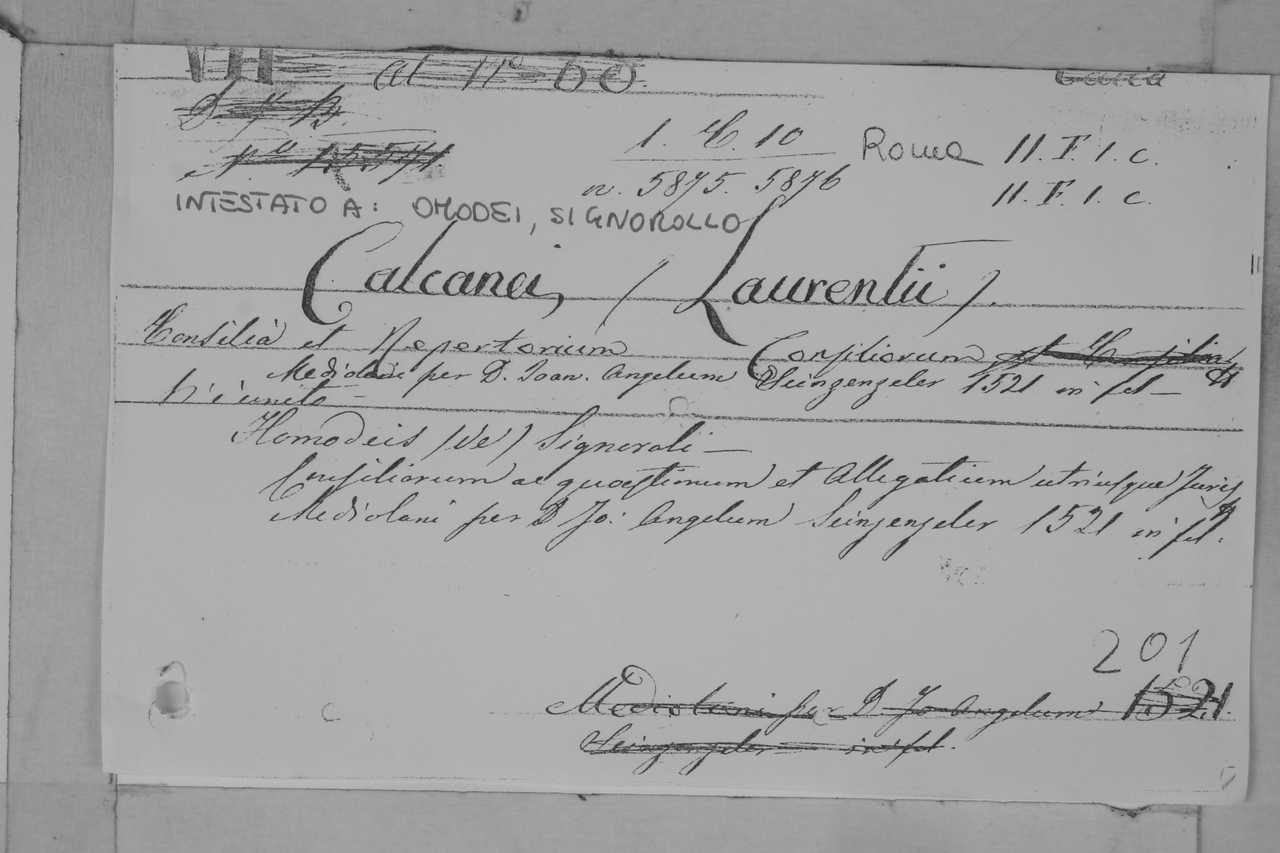 VII al n° 60
1. C. 10 Roma 11. F. 1. c.
n. 5875. 5876 11. F. 1. c.
INTESTATO A: OMODEI, SIGNOROLLO
Calcanei, (Laurentii).
Consilia et Repertorium Consiliorum
Mediolani per D. Joan. Angelum Scinzenzeler 1521 in fol —
V'è unito —
Homodeis (de) Signoroli —
Consiliorum ac quaestionum et Allegationum utriusque Juris
Mediolani per D Jo: Angelum Scinzenzeler 1521 in fol.
201
Mediolani per D Jo Angelum 1521
Scinzenzeler in fol.